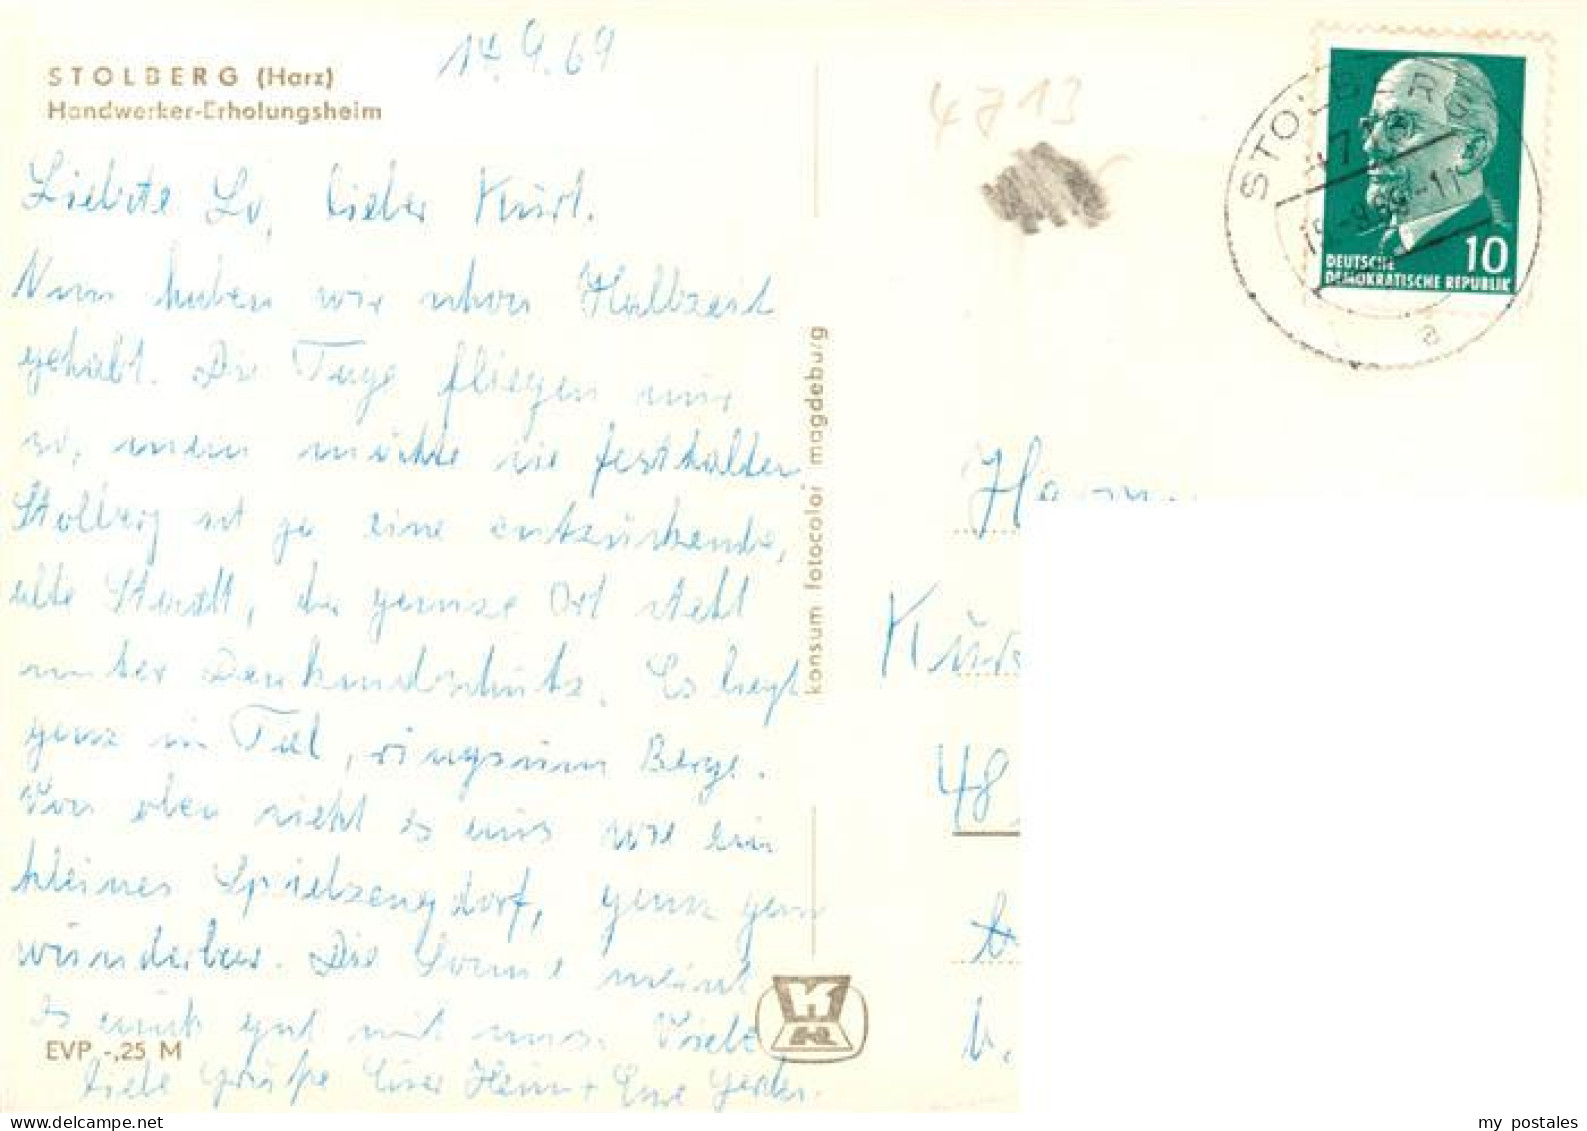 14.9.69
STOLBERG (Harz)
Handwerker-Erholungsheim
Liebste Lo, lieber Kurt.
Nun haben wir schon Halbzeit
gehabt. Die Tage fliegen nur
so, man möchte sie festhalten
Stolberg ist ja eine entzückende,
alte Stadt, der ganze Ort steht
unter Denkmalschutz. Es liegt
ganz im Tal, ringsum Berge.
Von oben sieht es aus wie ein
kleines Spielzeugdorf, ganz ganz
wunderbar. Die Sonne meint
es auch gut mit uns. Viele
liebe Grüße Eure
EVP -,25 M
konsum fotocolor magdeburg
4713
STOLBERG
471
-9.69-11
a
10
DEUTSCHE
DEMOKRATISCHE REPUBLIK
K
48
my postales